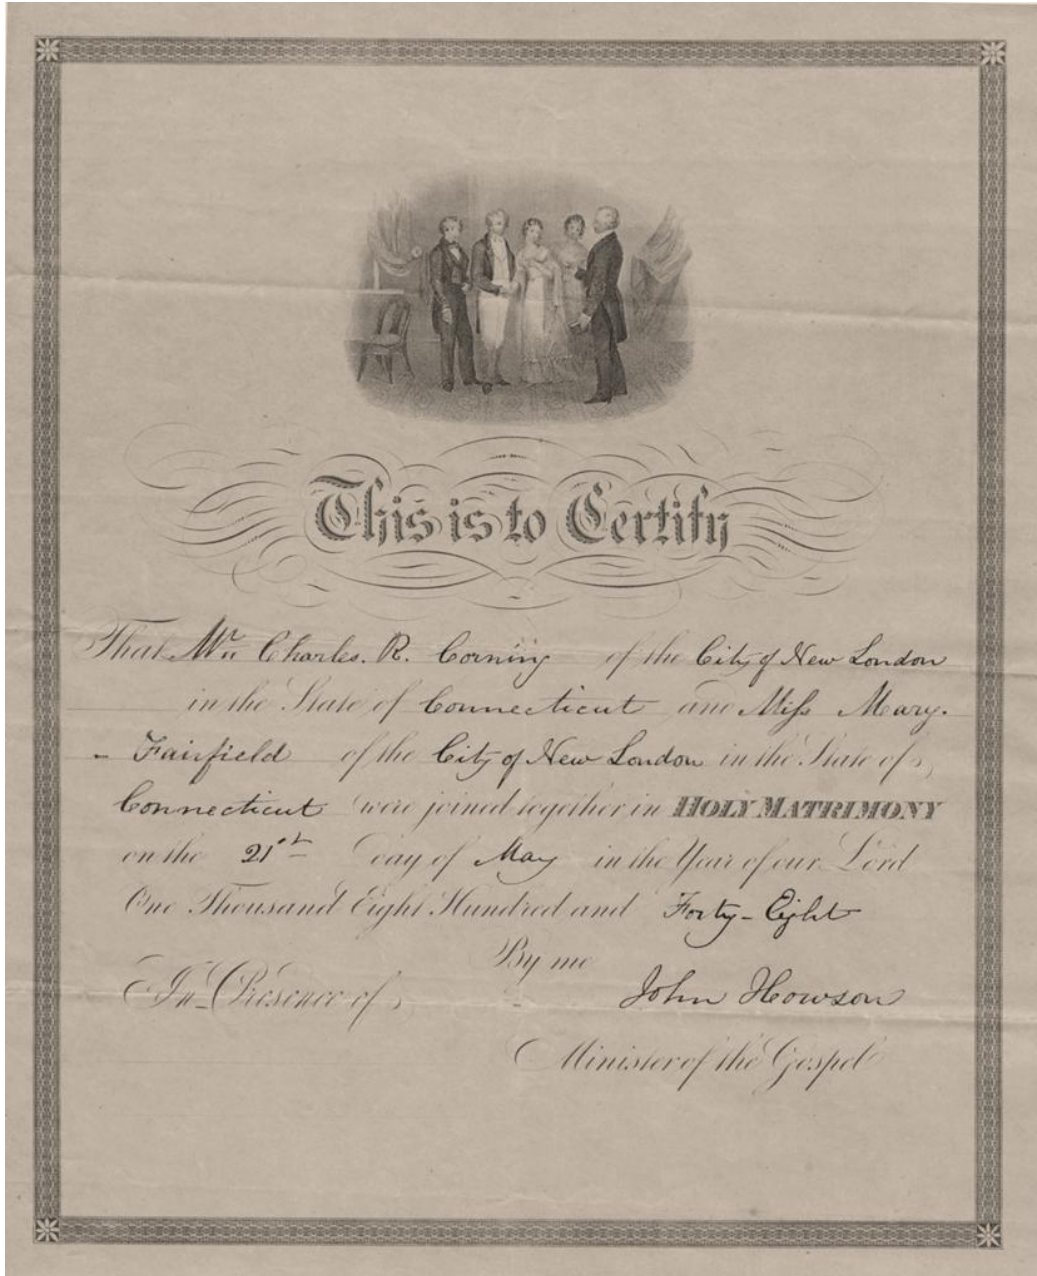 This is to Certify
That Mr. Charles. R. Corning of the City of New London
in the State of Connecticut and Miss Mary.
- Fairfield of the City of New London in the State of
Connecticut were joined together in HOLY MATRIMONY
on the 21st day of May in the Year of our Lord
One Thousand Eight Hundred and Forty-Eight
By me
In Presence of John Howson
Minister of the Gospel